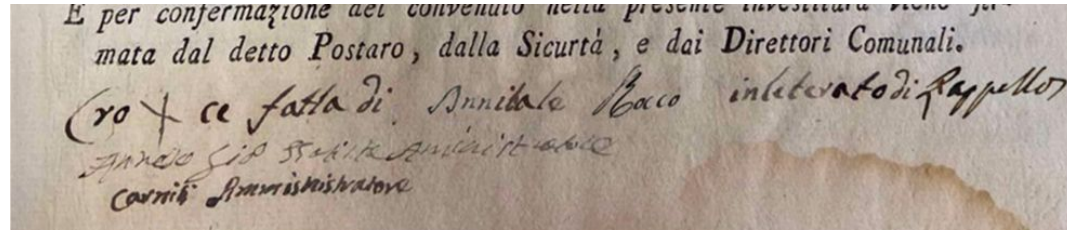 E per confermazione del convenuto nella presente investitura viene fir-
mata dal detto Postaro, dalla Sicurtà, e dai Direttori Comunali.
Cro X ce fatta di Annibale Roco inleterato di Rappello
Gio Batista Aministratore
Carniti Amministratore